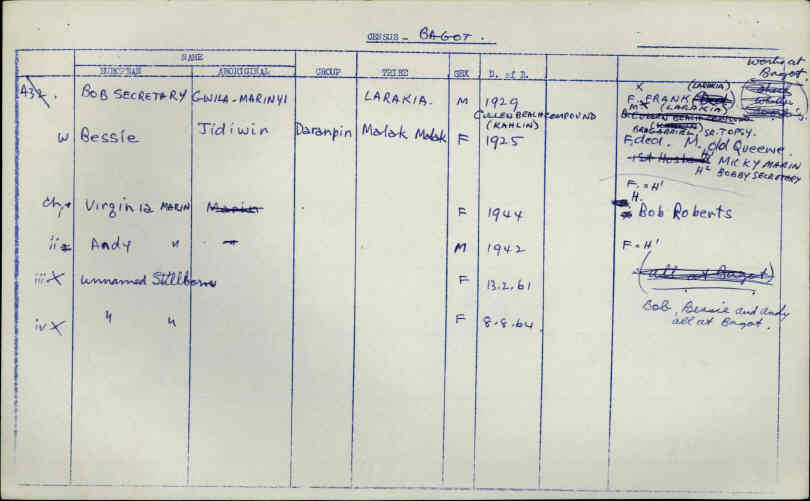 CENSUS - BAGOT.
NAME
EUROPEAN ABORIGINAL GROUP TRIBE SEX D. of B.
works at Bagot.
A32. BOB SECRETARY GWILA-MARINYI LARAKIA. M 1929
CULLEN BEACH COMPOUND
(KAHLIN)
X (LARAKIA)
F. FRANK
M X (LARAKIA)
BR GABRIEL) SR. TOPSY.
W Bessie Jidiwin Daranpin Malak Malak F 1925 F. dec'd. M. old Queenie.
1st Husband H' MICKY MARIN
H² BOBBY SECRETARY
F. = H'
H.
Ch. i Virginia MARIN Marin F 1944 Bob Roberts
ii Andy " M 1942 F = H'
(all at Bagot)
iii X unnamed Stillborn F 13.2.61
Bob, Bessie and Andy
all at Bagot.
iv X " " F 8.8.64